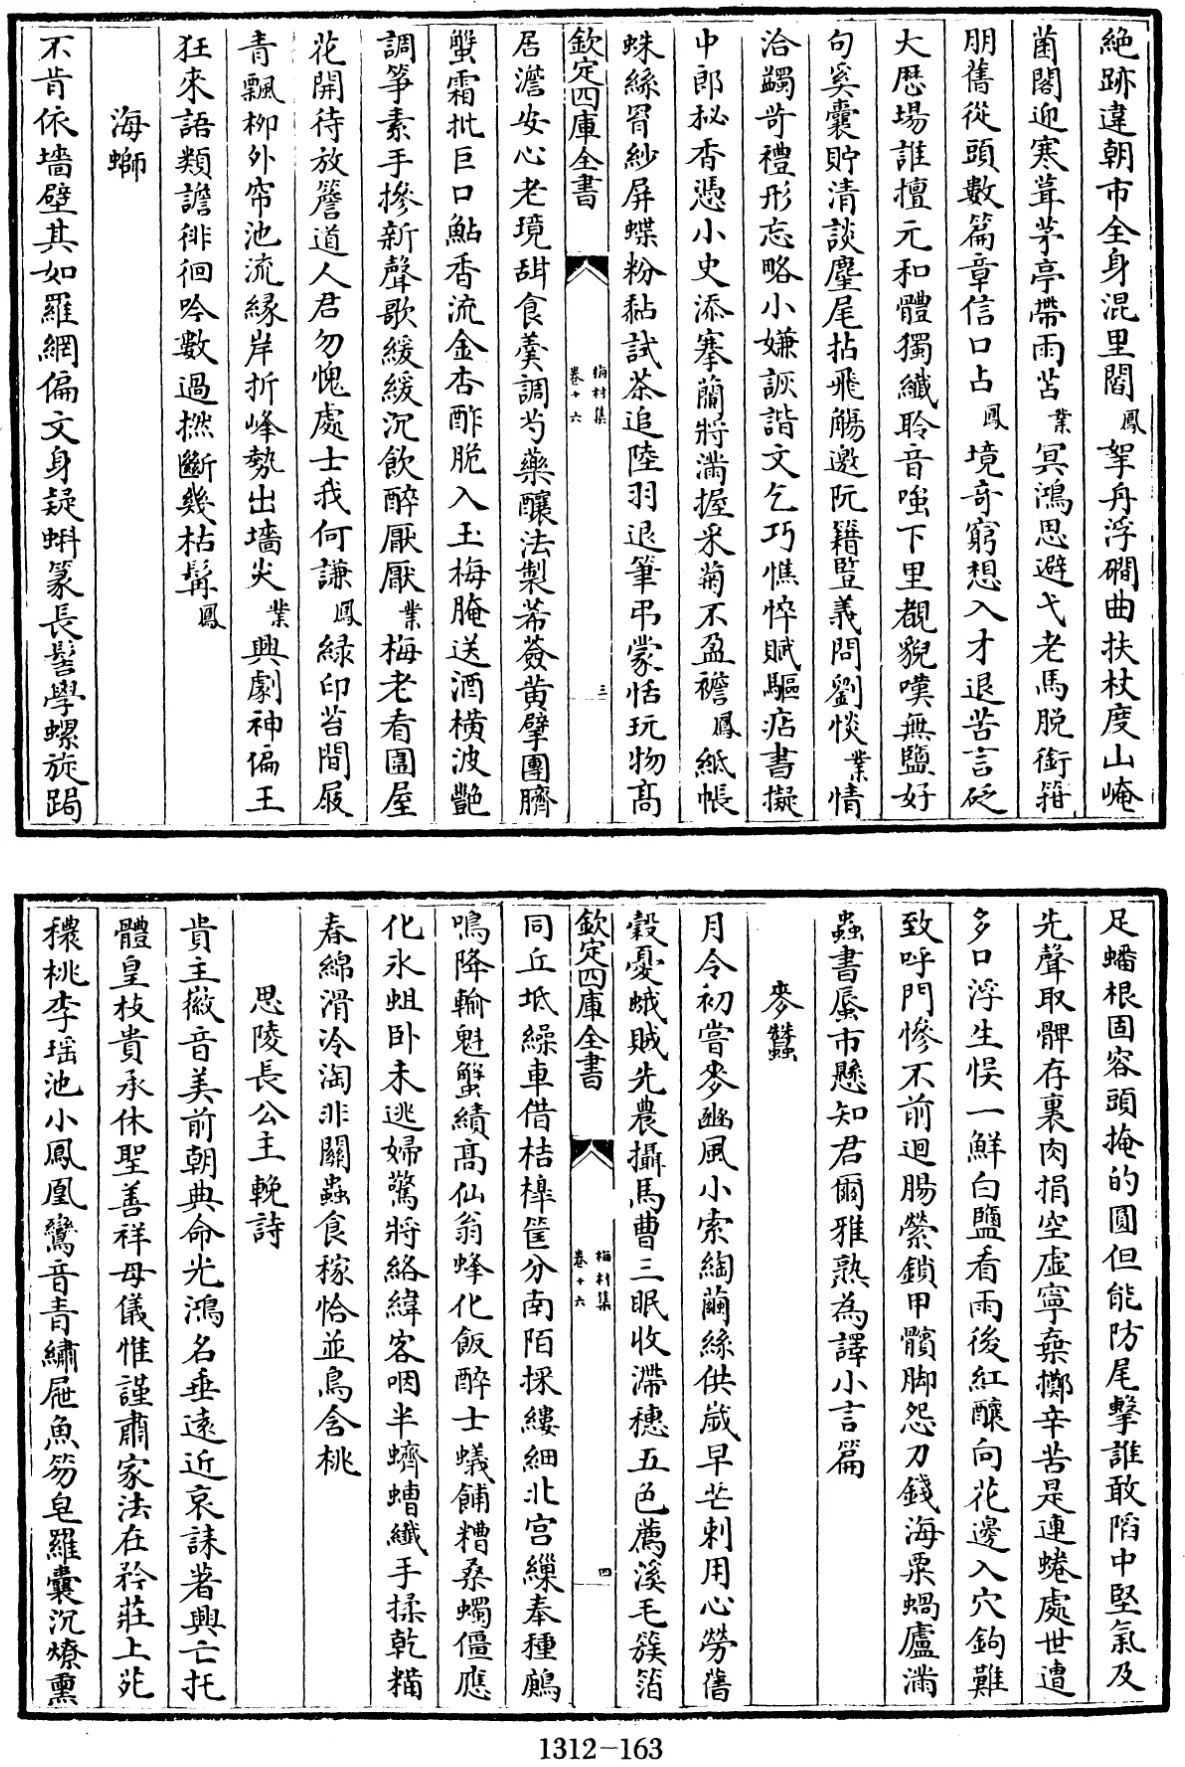 絶跡違朝市全身混里閻鳳挐舟浮磵曲扶杖度山崦
菌閣迎寒葺茅亭帶雨苫業冥鴻思避弋老馬脱銜箝
朋舊從頭數篇章信口占鳳境竒窮想入才退苦言砭
大厯場誰擅元和體獨纎聆音嗤下里覩貌嘆無鹽好
句奚囊貯清談麈尾拈飛觴邀阮籍竪義問劉惔業情
洽蠲苛禮形忘略小嫌詼諧文乞巧憔悴賦驅痁書擬
中郎秘香憑小史添搴蘭將滿握采菊不盈襜鳳紙帳
蛛絲罥紗屏蝶粉黏試茶追陸羽退筆弔蒙恬玩物髙
欽定四庫全書
梅村集
卷十六
三
居澹安心老境甜食羮調芍藥釀法製蒂薟黄擘團臍
蟹霜批巨口鮎香流金杏酢脆入玉梅腌送酒横波艶
調箏素手摻新聲歌緩緩沉飲醉厭厭業梅老看圍屋
花開待放簷道人君勿愧處士我何謙鳳緑印苔間屐
青飄栁外帘池流緣岸折峰勢出墻尖業興劇神偏王
狂來語類譫徘徊吟數過撚斷幾枯髯鳳
海螄
不肯依墻壁其如羅網偏文身疑蝌篆長髻學螺旋跼
足蟠根固容頭掩的圓但能防尾擊誰敢陷中堅氣及
先聲取髀存裏肉捐空虚寧棄擲辛苦是連蜷處世遭
多口浮生悮一鮮白鹽看雨後紅釀向花邊入穴鉤難
致呼門慘不前迴腸縈鎖甲髕脚怨刀錢海粟蝸廬滿
蟲書蜃市懸知君爾雅熟為譯小言篇
麥蠶
月令初嘗麥豳風小索綯繭絲供歲早芒刺用心勞舊
榖憂蛾賊先農攝馬曹三眠收滯穗五色薦溪毛簇箔
欽定四庫全書
梅村集
卷十六
四
同丘坻繰車借桔橰筐分南陌採縷細北宫繅奉種鷉
鳴降輸魁蟹績髙仙翁蜂化飯醉士蟻餔糟桑蠋僵應
化氷蛆卧未逃婦驚將絡緯客咽半蠐螬纎手揉乾糒
春綿滑冷淘非關蟲食稼恰並鳥含桃
思陵長公主輓詩
貴主徽音美前朝典命光鴻名垂逺近哀誄著興亡托
體皇枝貴承休聖善祥母儀惟謹肅家法在矜莊上苑
穠桃李瑶池小鳳凰鸞音青繡屜魚笏皂羅囊沉燎熏
1312-163